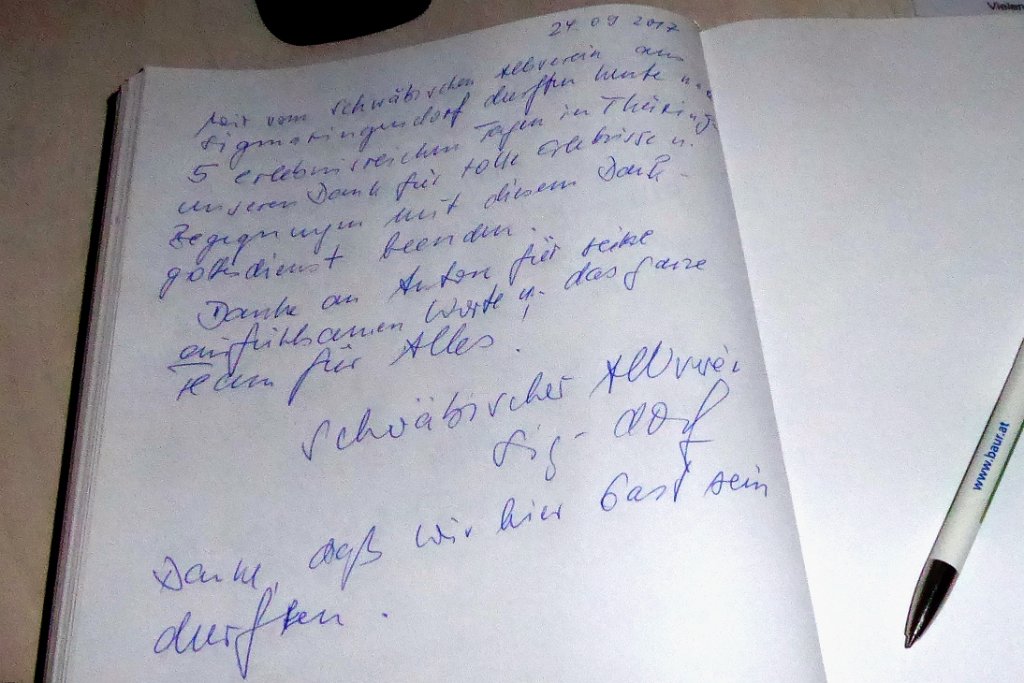 Vielen
24 09 2017
Wir vom schwäbischen Albverein aus
Sigmaringendorf durften heute
5 erlebnisreichen Tagen in Thüring
unseren Dank für tolle Erlebnisse u.
Begegnungen mit diesem Dank-
gottesdienst beenden.
Danke an Anton für seine
einfühlsamen Worte u. das ganze
Team für Alles!
schwäbischer Albverei
Sig-dorf
Danke, daß wir hier Gast sein
durften.
www.baur.at